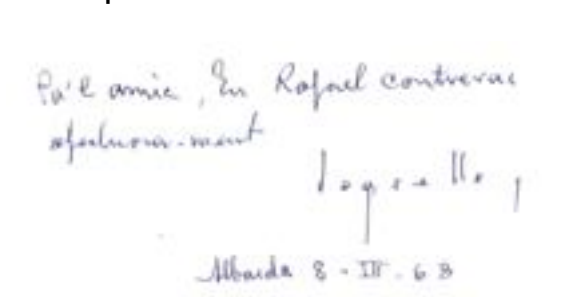 Pa'l amic, En Rafael Contreras
afectuosa-ment
Albaida 8-III-63